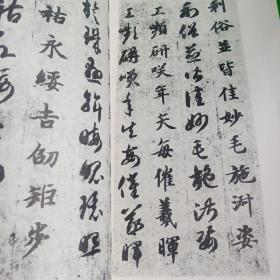 利俗並皆佳妙毛施淑姿
利俗並皆佳妙毛施淑姿
工顰研咲年矢每催羲暉
工顰研咲年矢每催羲暉
懸斡晦魄環照
祜永綏吉劭矩步